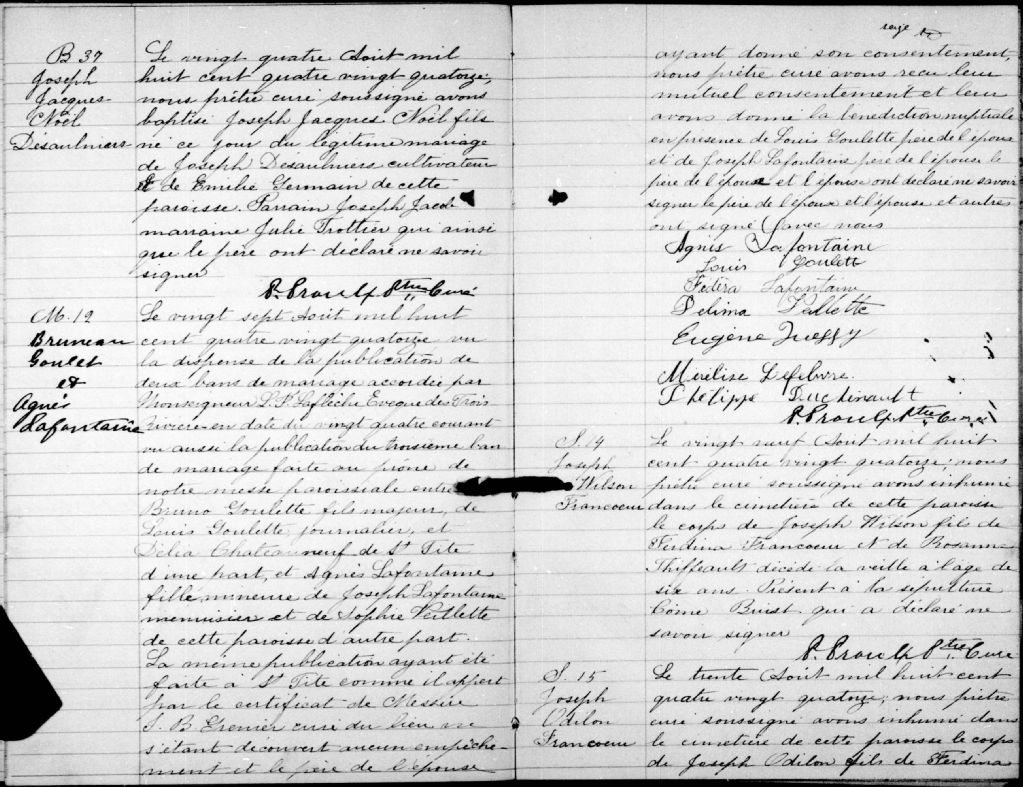 B 37
Joseph
Jacques
Noël
Désaulniers
Le vingt quatre Août mil
huit cent quatre vingt quatorze;
nous prêtre curé soussigné avons
baptisé Joseph Jacques Noël fils
né ce jour du légitime mariage
de Joseph Desaulniers cultivateur
et de Emilie Germain de cette
paroisse. Parrain Joseph Jacob
marraine Julie Trottier qui ainsi
que le père ont déclaré ne savoir
signer
P. Proulx Ptre Curé
M. 12
Bruneau
Goulet
et
Agnès
Lafontaine
Le vingt sept Août mil huit
cent quatre vingt quatorze vu
la dispense de la publication de
deux bans de mariage accordée par
Monseigneur L. F. Laflèche Evêque des Trois
Rivière en date du vingt quatre courant
vu aussi la publication du troisième ban
de mariage faite au prône de
notre messe paroissiale entre
Bruno Goulette fils majeur, de
Louis Goulette journalier, et
Délia Chateauneuf de St Tite
d'une part, et Agnès Lafontaine
fille mineure de Joseph Lafontaine
menuisier et de Sophie Veillette
de cette paroisse d'autre part.
La même publication ayant été
faite à St Tite comme il appert
par le certificat de Messire
J. B. Grenier curé du lieu ne
s'étant découvert aucun empêche-
ment et le père de l'épouse
seize
ayant donné son consentement,
nous prêtre curé avons reçu leur
mutuel consentement et leur
avons donné la bénédiction nuptiale
en présence de Louis Goulette père de l'époux
et de Joseph Lafontaine père de l'épouse le
père de l'épouse et l'épouse ont déclaré ne savoir
signer le père de l'époux et l'épouse et autres
ont signé avec nous
Agnès Lafontaine
Louis Goulett
Fedéra Lafontaine
Délima Vallette
Eugène
Mérélise Lefebvre
Philippe Duchenault
P. Proulx Ptre Curé
S. 14
Joseph
Wilson
Francoeur
Le vingt neuf Août mil huit
cent quatre vingt quatorze; nous
prêtre curé soussigné avons inhumé
dans le cimetière de cette paroisse
le corps de Joseph Wilson fils de
Ferdina Francoeur et de Rosanna
Thiffeault décédé la veille à l'âge de
six ans. Présent à la sépulture
Côme Buist qui a déclaré ne
savoir signer
P. Proulx Ptre Curé
S. 15
Joseph
Odilon
Francoeur
Le trente Août mil huit cent
quatre vingt quatorze; nous prêtre
curé soussigné avons inhumé dans
le cimetière de cette paroisse le corps
de Joseph Odilon fils de Ferdina